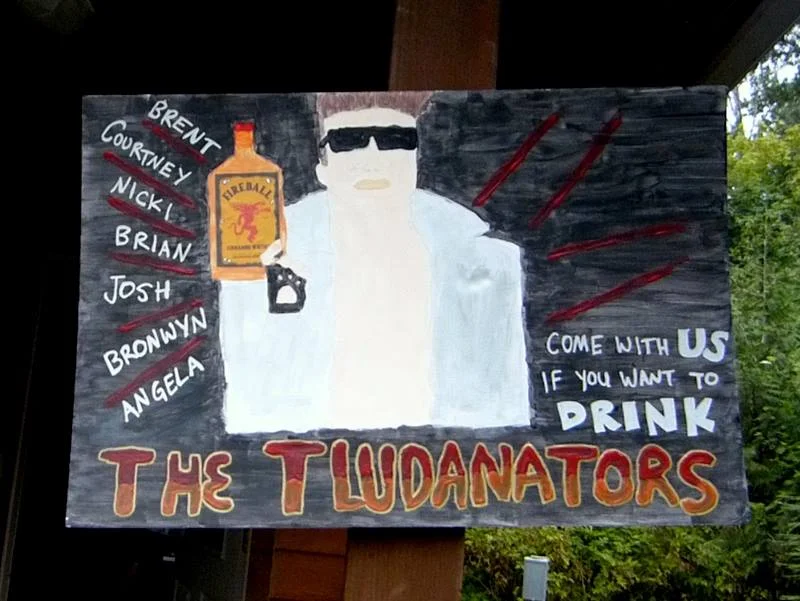 BRENT
COURTNEY
NICKI
BRIAN
JOSH
BRONWYN
ANGELA
FIREBALL
CINNAMON WHISKY
COME WITH US
IF YOU WANT TO
DRINK
THE TLUDANATORS